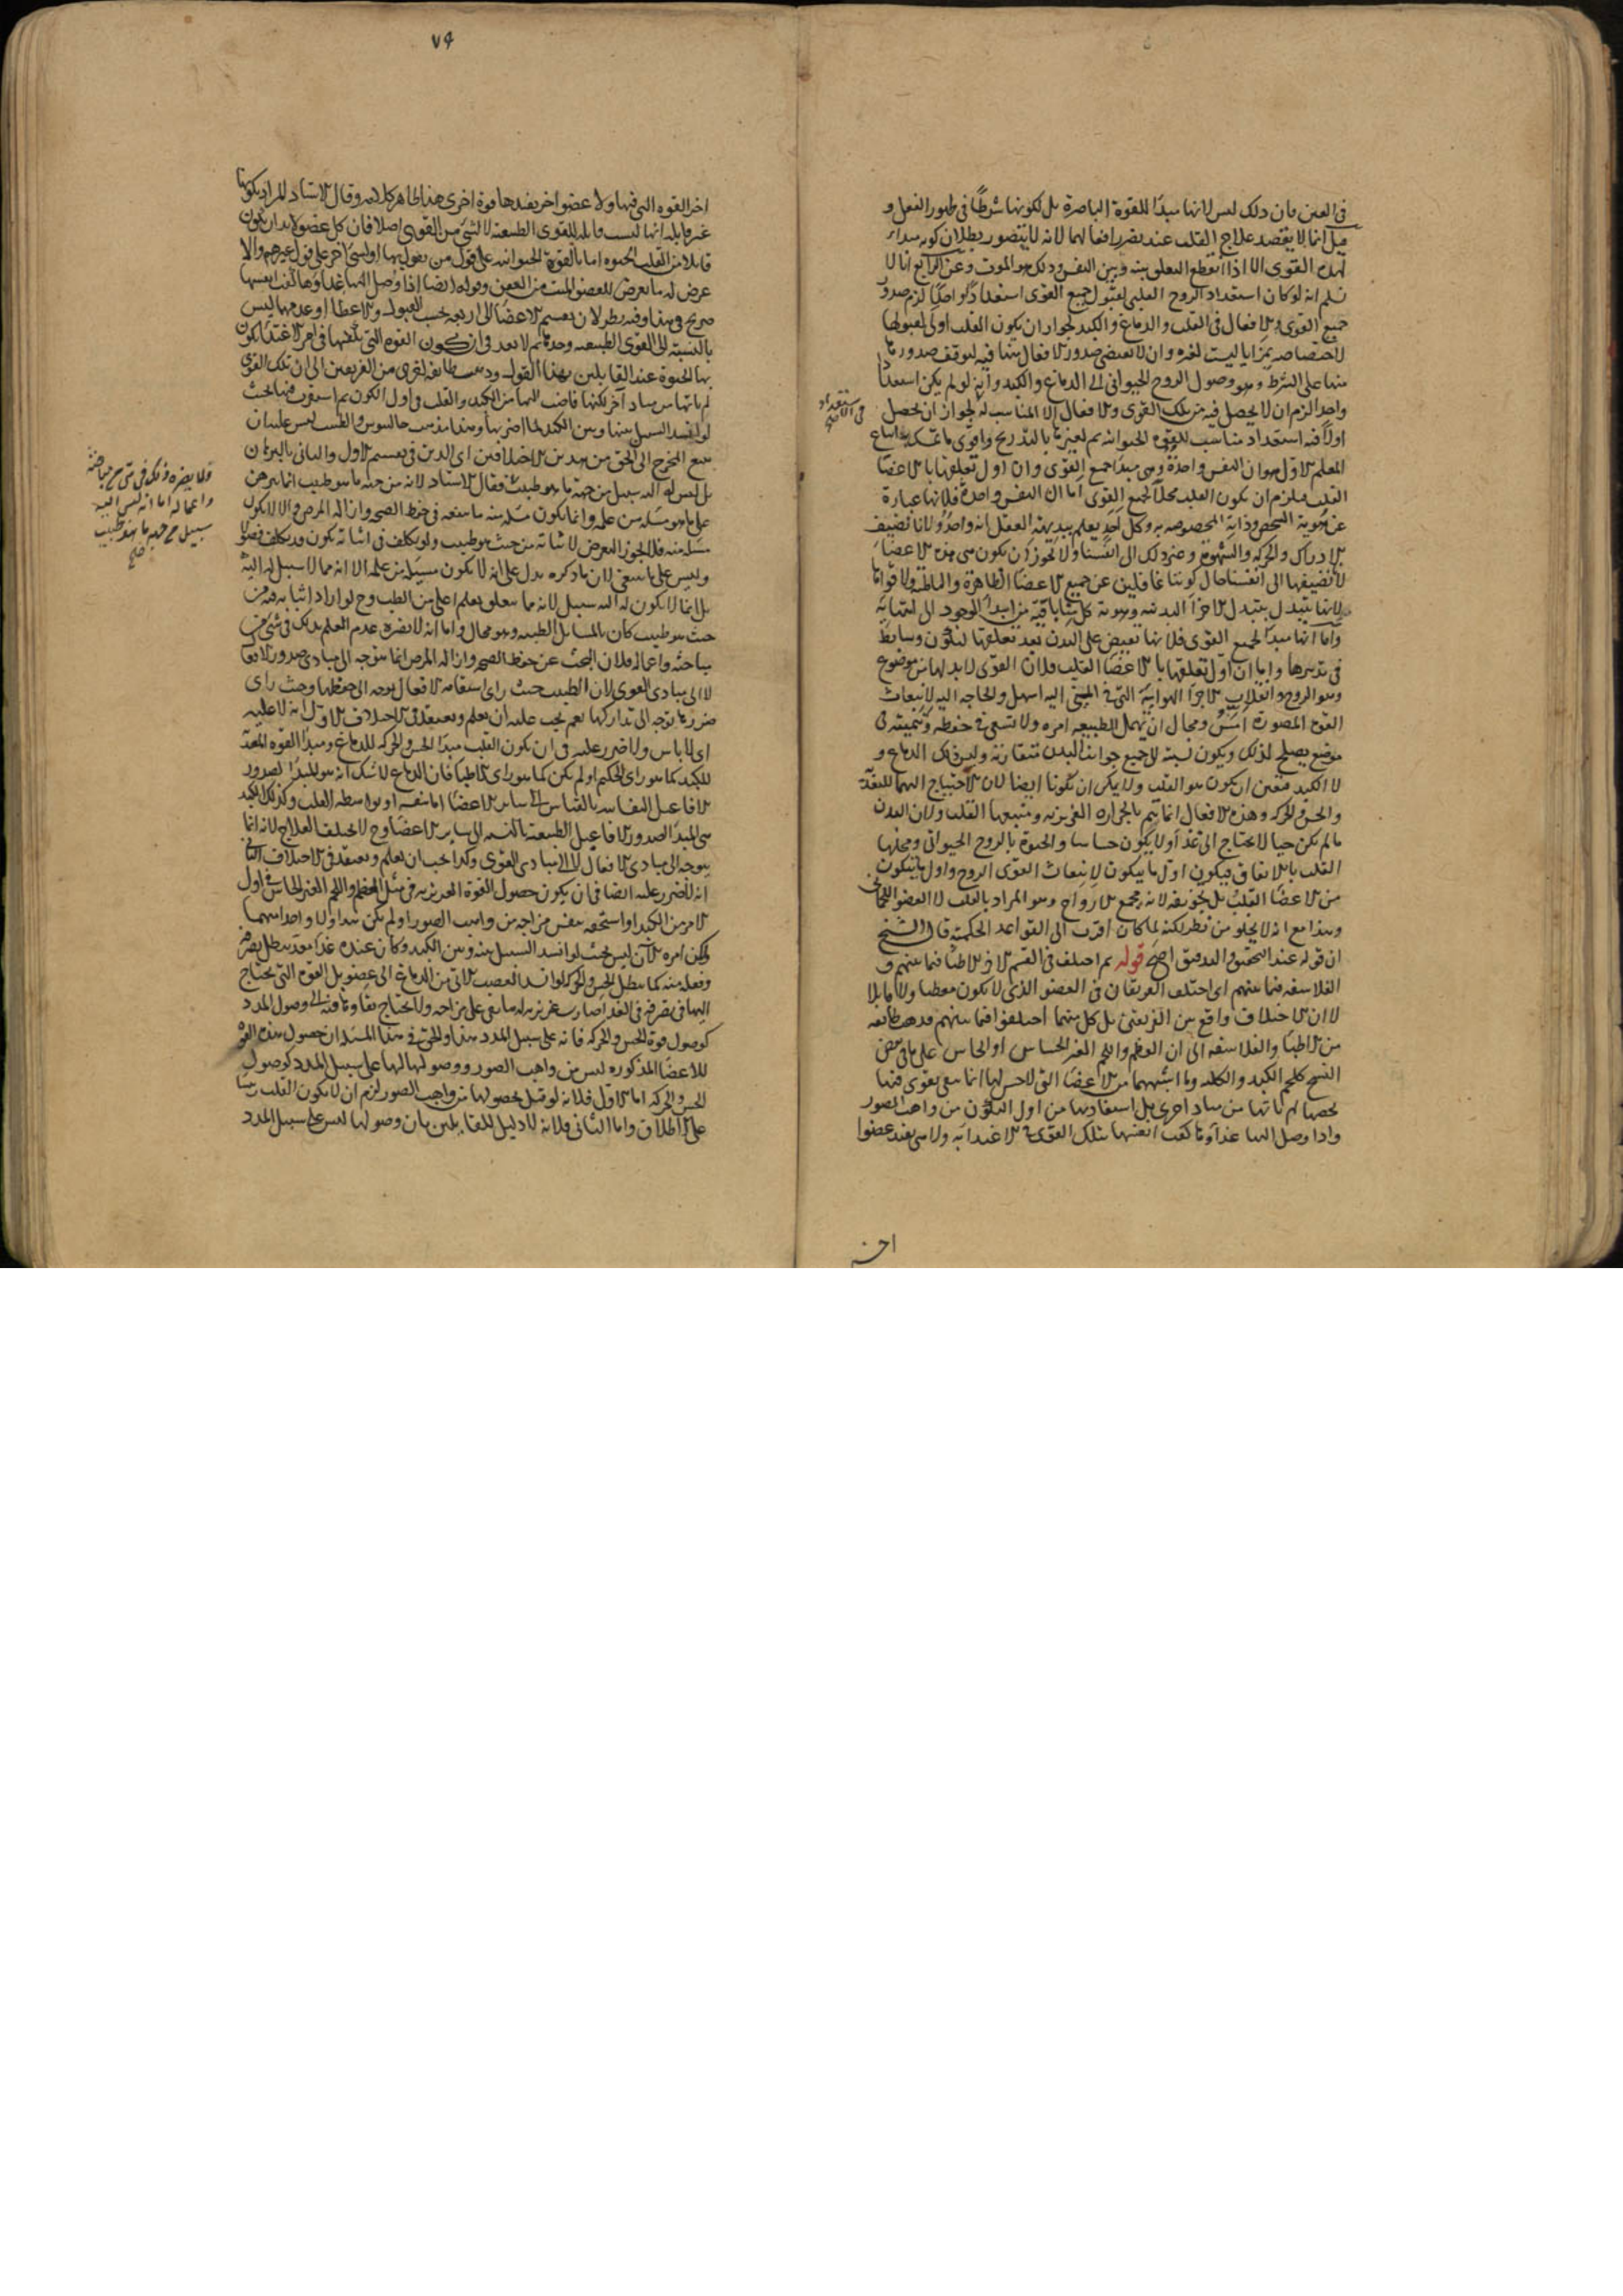 في العين فان ذلك ليس لانها مبدأ للقوة الباصرة بل لكونها شرطا في ظهور الفعل و
قيل انما لا يقصد علاج القلب عند تضرر افعالها لانه لا يتصور بطلان كونه مبدأ
لهذه القوى الا اذا انقطع التعلق بينه وبين النفس وذلك هو الموت وعن الرابع انا لا
نسلم انه لو كان استعداد الروح القلبي لقبول جميع القوى استعدادا واحدا لزم صدور
جميع القوى والافعال في القلب والدماغ والكبد لجواز ان يكون القلب اولى لقبولها
لاختصاصه بمزايا ليست لغيره وان لا يقتضي صدور الافعال منها فيه لتوقف صدورها
منها على الشرط وهو وصول الروح الحيواني الى الدماغ والكبد وانه لو لم يكن استعدادا
واحدا لزم ان لا يحصل فيه من تلك القوى والافعال الا المناسب له لجواز ان يحصل
اولا فيه استعداد مناسب للقوة الحيوانية ثم لغيرها بالتدريج واقوى ما تمسك به اتباع
المعلم الاول هو ان النفس واحدة وهي مبدأ جميع القوى وان اول تعلقها بالاعضا
القلب فيلزم ان يكون القلب محلا لجميع القوى اما ان النفس واحدة فلانها عبارة
عن هوية الشخص وذاته المخصوصة به وكل احد يعلم ببديهة العقل انه واحد ولانا نضيف
الادراك والحركة والشهوة وغير ذلك الى انفسنا ولا يجوز ان يكون هي هذه الاعضا
لا نضيفها الى انفسنا حال كوننا غافلين عن جميع الاعضا الظاهرة والباطنة ولا قواها
لانها تتبدل بتبدل الاجزا البدنية وهوية كل منا باقية من ابتدا الوجود الى انتهائه
واما انها مبدأ لجميع القوى فلانها تفيض على البدن بعد تعلقها لتكون وسايط
في تدبيرها واما ان اول تعلقها بالاعضا القلب فلان القوى لابد لها من موضوع
وهو الروح وانقلاب الاجزا الهوائية التي في المني اليه اسهل والحاجة اليه لانبعاث
القوة المصورة امس ومحال ان تهمل الطبيعة امره ولا تسعى في حفظه وتنميته في
موضع يصلح لذلك ويكون نسبته الى جميع جوانب البدن متقاربة وليس ذلك الدماغ و
لا الكبد فتعين ان يكون هو القلب ولا يمكن ان تكونا ايضا لان الاحتياج اليهما للتغذية
والحس والحركة وهذه الافعال انما يتم بالحرارة الغريزية ومنبعها القلب ولان البدن
ما لم يكن حيا لا يحتاج الى غذا ولا يكون حساسا والحيوة بالروح الحيواني ومحلها
القلب بالاتفاق فيكون اول ما يتكون لانبعاث القوى الروح واول ما يتكون
من الاعضا القلب بل تجويفه لانه مجمع الارواح وهو المراد بالقلب لا العضو اللحمي
وهذا مع انه لا يخلو من نظر لكنه لما كان اقرب الى القواعد الحكمية قال الشيخ
ان قوله عند التحقيق والتدقيق اصح قوله ثم اختلف في القسم الاخر الاطبا فيما بينهم و
الفلاسفة فيما بينهم اي اختلف الفريقان في العضو الذي لا يكون معطيا ولا قابلا
لا ان الاختلاف واقع بين الفريقين بل كل منهما اختلفوا فيما بينهم فذهب طايفة
من الاطبا والفلاسفة الى ان العظم واللحم الغير الحساس او الحاس على ما في بعض
النسخ كلحم الكبد والكلية وما اشبههما من الاعضا التي لا حس لها انما تبقى بقوى فيها
تخصها لم تاتها من مباد اخرى بل استفادتها من اول التكون من واهب الصور
واذا وصل اليها غذاؤها كفت انفسها بتلك القوى في الاغتذا به ولا هي تفيد عضوا
استعداد
في الاصل
اخر
٧٩
اخر القوة التي فيها ولا عضو اخر يفيدها قوة اخرى هذا ظاهر كلامه وقال الاستاد المراد بكونها
غير قابلة انها ليست قابلة للقوى الطبيعية لا لشي من القوى اصلا فان كل عضو لابد ان يكون
قابلا من القلب الحيوة اما بالقوة الحيوانية على قول من يقول بها او لشي اخر على قول غيرهم والا
عرض له ما يعرض للعضو الميت من العفن وقوله ايضا اذا وصل اليها غذاؤها كفت انفسها
صريح في هذا وفيه نظر لان تقسيم الاعضا الى اربعة بحسب القبول والاعطا او عدمهما ليس
بالنسبة الى القوى الطبيعية وحدها ثم لا بعد في ان تكون القوة التي تكفيها في امر الاغتذا يكون
بها الحيوة عند القايلين بهذا القول وذهب طايفة اخرى من الفريقين الى ان تلك القوى
لم تاتها من مباد اخر لكنها فاضت اليها من الكبد والقلب في اول الكون ثم استقرت فيها بحيث
لو انسد السبيل بينها وبين الكبد لما اضر بها وهذا مذهب جالينوس والطبيب ليس عليه ان
يتتبع المخرج الى الحق من هذين الاختلافين اي الذين في تقسيم الاول والثاني بالبرهان
بل ليس له اليه سبيل من جهة ما هو طبيب فقال الاستاد لانه من جهة ما هو طبيب انما يبرهن
على ما هو مسئلة من علمه وانما يكون مسئلة منه ما ينفعه في حفظ الصحة وازالة المرض والا لا يكون
مسئلة منه فلا يجوز التعرض لاثباته من حيث هو طبيب ولو تكلف في اثباته يكون قد تكلف فضولا
وليس على ما ينبغي لان ما ذكره يدل على انه لا يكون مسئلة من علمه الا انه مما لا سبيل له اليه
بل انما لا يكون له اليه سبيل لانه مما يتعلق بعلم اعلى من الطب وح لو اراد اثباته من
حيث هو طبيب كان بالمسايل الطبية وهو محال واما انه لا يضره عدم العلم بذلك في شي من
مباحثه واعماله فلان البحث عن حفظ الصحة وازالة المرض انما يتوجه الى مبادي صدور الافعال
لا الى مبادي القوى لان الطبيب حيث راى استقامة الافعال توجه الى حفظها وحيث راى
ضررها توجه الى تداركها نعم يجب عليه ان يعلم ويعتقد في الاختلاف الاول انه لا عليه
اي لا باس ولا ضرر عليه في ان يكون القلب مبدأ الحس والحركة للدماغ ومبدأ القوة المغذية
للكبد كما هو راى الحكيم او لم يكن كما هو راى الاطبا فان الدماغ لا شك انه هو المبدأ لصدور
الافاعيل النفسانية بالقياس الى ساير الاعضا اما بنفسه او بواسطة القلب وكذلك الكبد
هي المبدأ لصدور الافاعيل الطبيعية بالنسبة الى ساير الاعضا وح لا يختلف العلاج لانه انما
يتوجه الى مبادي الافعال لا الى مبادي القوى وكذا يجب ان يعلم ويعتقد في الاختلاف الثاني
انه لا ضرر عليه ايضا في ان يكون حصول القوة الغريزية في مثل العظم واللحم الغير الحاس في اول
الامر من الكبد او استحقه بنفس مزاجه من واهب الصور او لم يكن هذا ولا واحد منهما
ولكن امره الآن ليس بحيث لو انسد السبيل بينه وبين الكبد وكان عنده غذا معد يبطل تصرفه
وفعله منه كما يبطل الحس والحركة لو انسد العصب الآتي من الدماغ الى عضو بل القوة التي يحتاج
اليها في تصرفه في الغذا صارت غريزية له ما بقي على مزاجه ولا يحتاج بقاؤها فيه الى وصول المدد
كوصول قوة الحس والحركة فانه على سبيل المدد هذا والحق في هذا المسئلة ان حصول هذه القوة
للاعضا المذكورة ليس من واهب الصور ووصولها اليها على سبيل المدد كوصول
الحس والحركة اما الاول فلانه لو قيل بحصولها من واهب الصور لزم ان لا يكون القلب رييسا
على الاطلاق واما الثاني فلانه لا دليل للقايلين بان وصولها ليس على سبيل المدد
فلا يضره ذلك في شي من مباحثه
واعماله اما انه ليس اليه
سبيل من جهة ما هو طبيب
صح